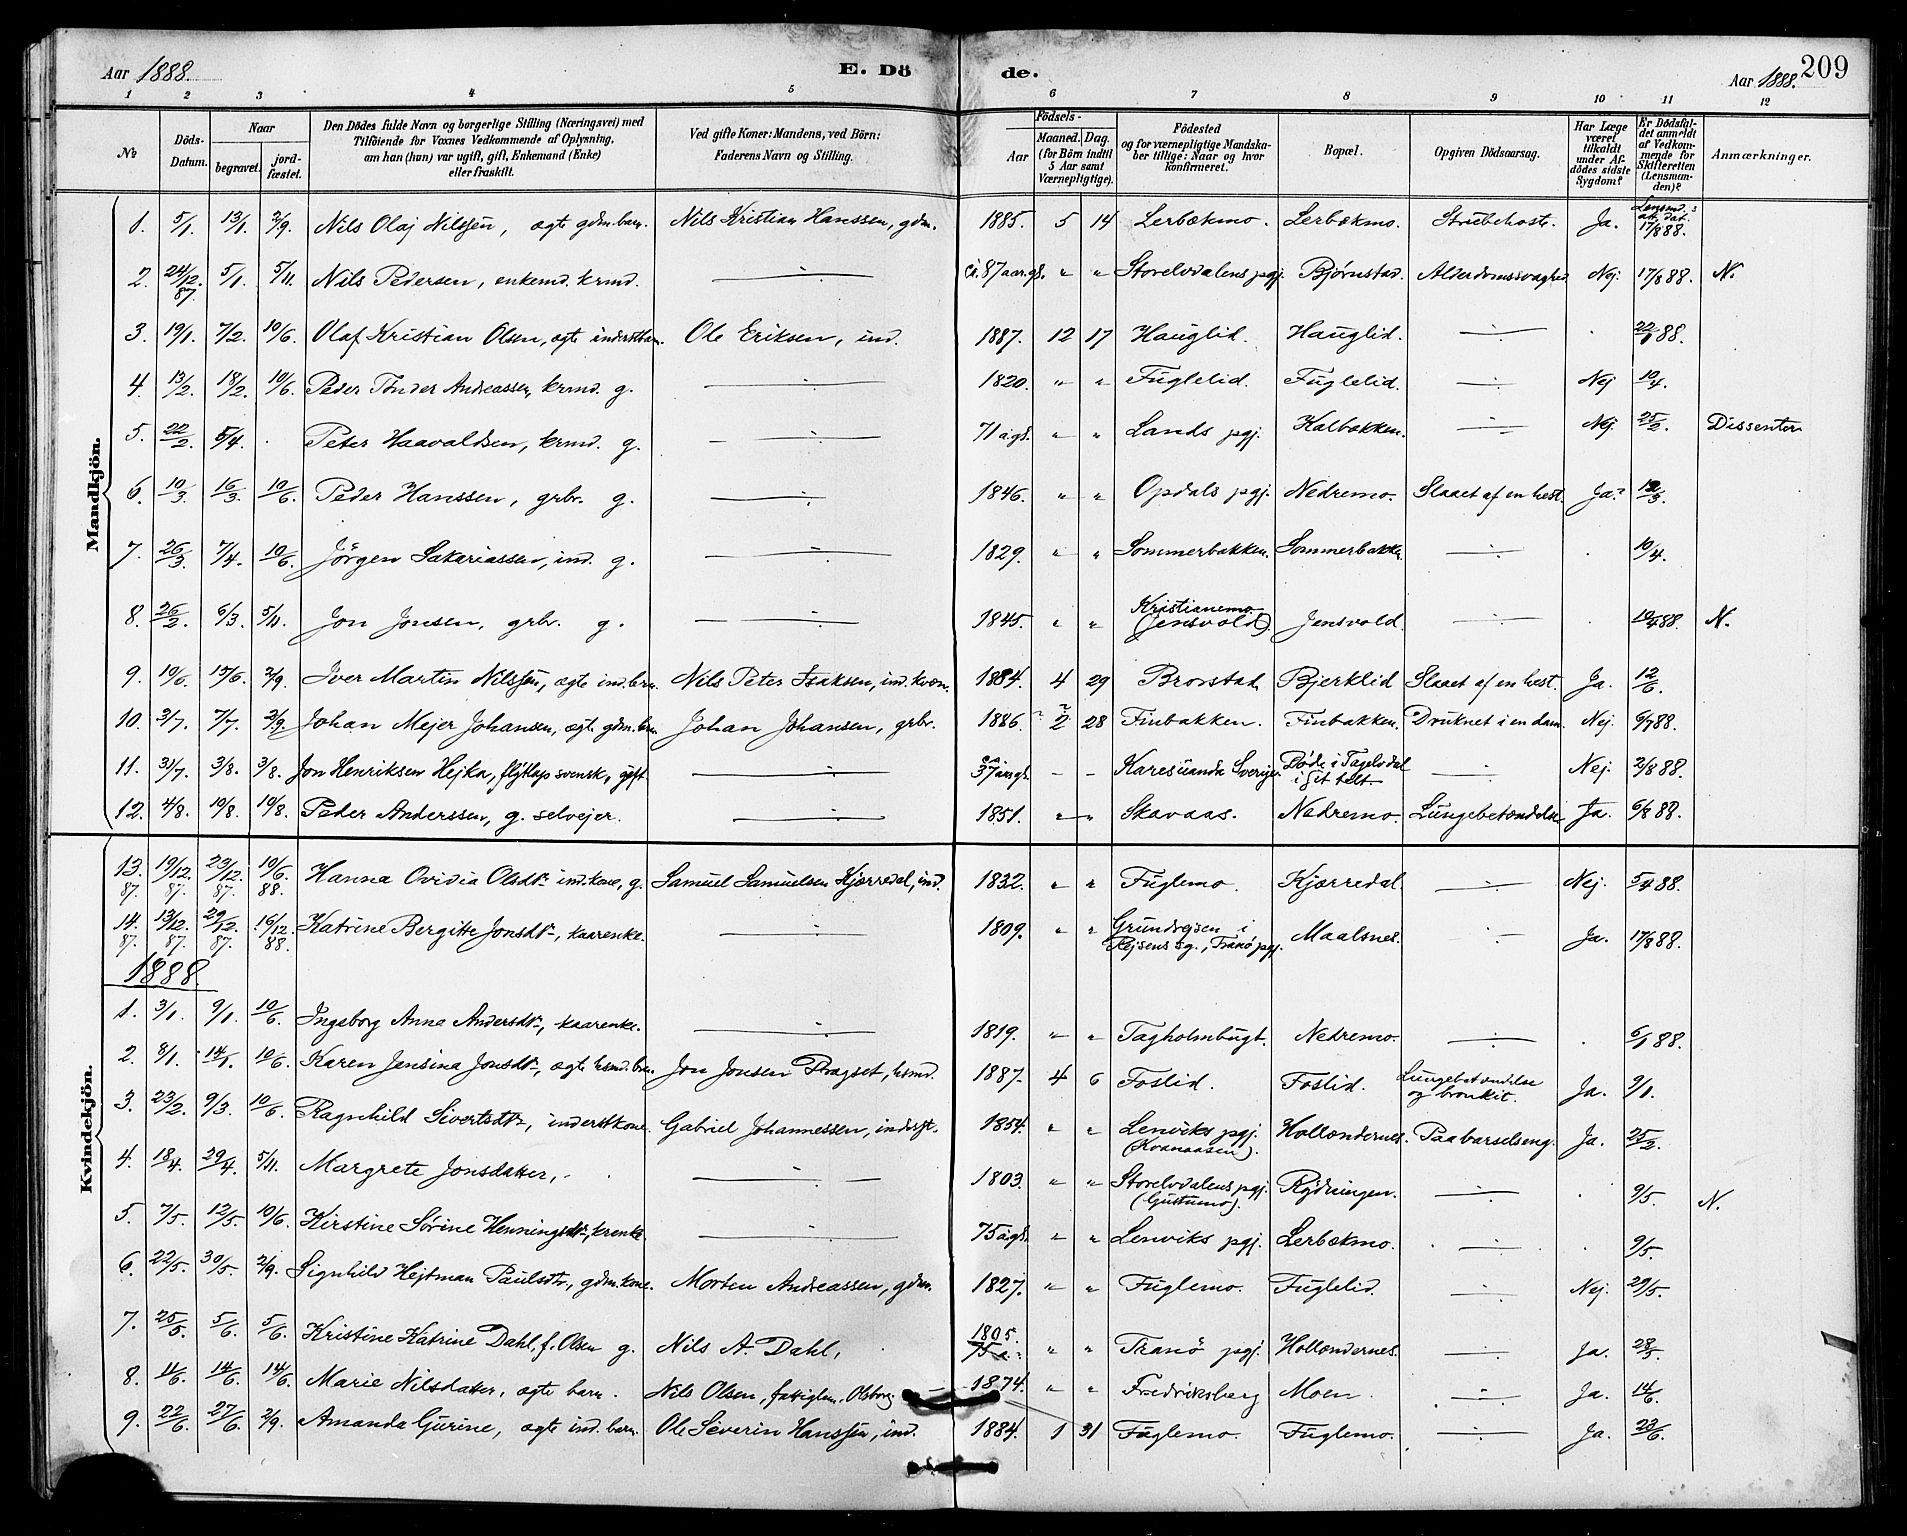 Aar 1888. E. Dö de. Aar 1888. 209
1 2 3 4 5 6 7 8 9 10 11 12
№ Döds-Datum. Naar begravet. jord-fæstet. Den Dödes fulde Navn og borgerlige Stilling (Næringsvei) med Tilföiende for Voxnes Vedkommende af Oplysning, om han (hun) var ugift, gift, Enkemand (Enke) eller fraskilt. Ved gifte Koner: Mandens, ved Börn: Faderens Navn og Stilling. Födsels- Aar Maaned. Dag. (for Börn indtil 5 Aar samt Værnepligtige). Födested og for værnepligtige Mandskaber tillige: Naar og hvor konfirmeret. Bopæl. Opgiven Dödsaarsag. Har Læge været tilkaldt under Afdödes sidste Sygdom? Er Dödsfaldet anmeldt af Vedkommende for Skifteretten (Lensmanden)? Anmærkninger.
Mandkjön.
1. 5/1 13/1 2/9. Nils Olaj Nilssen, ægte gdm. barn. Nils Kristian Hanssen, gdm. 1885. 5 14 Lerbækmo. Lerbækmo. Strubehoste. Ja. Lensmd.s att. dat. 17/8 88.
2. 24/12. 87 5/1. 5/11. Nils Pedersen, enkemd. krmd. —:— ca. 87 aar. gl. " " Storelvdalens pgj. Bjørnstad. Alderdomssvaghed Nej. 17/8 88. N.
3. 19/1. 7/2. 10/6. Olaf Kristian Olsen, ægte inderstbarn. Ole Eriksen, ind. 1887. 12 17 Hauglid. Hauglid. —:— . 22/1 88.
4. 13/2. 18/2. 10/6. Peder Tønder Andreassen, krmd. g. —:— 1820. " " Fuglelid. Fuglelid. —:— Nej 10/4.
5. 22/2. 5/4. . Peter Haavaldsen, krmd. g. —:— 71 a. gl. " " Lands pgj. Kalbakken. —:— Nej. 25/2. Dissenter
6. 10/3. 16/3. 10/6. Peder Hanssen, grbr. g. —:— 1846. " " Opdals pgj. Nedremo. Slaaet af en hest. Ja? 12/3.
7. 26/3 7/4. 10/6. Jørgen Sakariassen, ind. g. —:— 1829. " " Sommerbakken. Sommerbakken —:— . 10/4.
8. 26/2. 6/3. 5/11. Jon Jonsen, grbr. g. —:— 1845. " " Kristianemo (Jensvold). Jensvold. —:— . 10/4 88. N.
9. 10/6. 15/6. 2/9. Iver Martin Nilssen, ægte ind. barn. Nils Peter Isaksen, ind. kvæn. 1884. 4 29 Brorstad Bjerklid Slaaet af en hest. Ja. 12/6.
10. 3/7. 7/7. 2/9. Johan Mejer Johansen, ægte gdm. brn. Johan Johansen, grbr. 1886. 2 28 Finbakken. Finbakken. Druknet i en dam. Nej. 6/7 88.
11. 31/7. 3/8. 3/8. Jon Henriksen Hejka, flytlap svensk, gift. —:— ca 37 aar. gl. - - Karesuanda Sverige. Døde i Tagelvdal i sit telt. —:— Nej. 2/8 88.
12. 4/8. 10/8. 10/8. Peder Anderssen, g. selvejer. —:— 1851. " " Skavaas. Nedremo. Lungebetændelse Ja. 6/8 88.
Kvindekjön.
13. 87. 19/12. 87. 23/12. 87. 10/6. 88. Hanna Ovidia Olsdtr. ind. kone, g. Samuel Samuelsen Kjærredal, ind. 1832. " " Fuglemo. Kjærredal. —:— Nej. 5/4 88.
14. 87. 13/12. 87. 29/12 87. 16/12. 88. Katrine Bergitte Jonsdtr., kaarenke. —:— 1809. " " Grundvejsen i Rejsens sg., Tranø pgj. Maalsnes. —:— Ja. 17/8 88.
1888.
1. 3/1. 9/1. 10/6. Ingeborg Anna Andersdtr., kaarenke. —:— 1819. " " Tagholmbugt. Nedremo. —:— . 6/1 88.
2. 8/1. 14/1. 10/6. Karen Jensina Jonsdtr., ægte hsmd. brn. Jon Jonsen Dragset, hsmd. 1887. 4 6 Foslid. Foslid. Lungebetændelse og bronkit. Ja. 9/1.
3. 23/2. 9/3. 10/6. Ragnhild Sivertsdtr., inderstkone. Gabriel Johannessen, inderst. 1854. " " Lenviks pgj. (Kvanaasen). Hollændernes. Paa barselseng. Ja. 25/2.
4. 18/4. 29/4. 5/11. Margrete Jonsdatter, —:— 1803. " " Storelvdalens pgj. Rydningen. —:— . 9/5. N.
5. 7/5. 12/5. 10/6. Kirstine Sørine Henningsdtr., krenke. —:— 75 a. gl. " " Lenviks pgj. Lerbækmo. —:— . 9/5.
6. 22/5. 30/5. 2/9. Signhild Hejtman Paulsdtr., gdm. kone. Morten Andreassen, gdm. 1827. " " Fuglemo. Fuglelid. —:— Nej. 29/5.
7. 25/5. 5/6. 5/6. Kristine Katrine Dahl, f. Olsen g. Nils A. Dahl, 1805. 75 a. " " Tranø pgj. Hollændernes. —:— Ja. 28/5.
8. 11/6. 14/6. 14/6. Marie Nilsdatter, ægte barn. Nils Olsen, fattiglem, Olsborg 1874. " " Fredriksberg Moen. —:— Ja. 14/6.
9. 22/6. 27/6. 2/9. Amanda Gurine, ægte ind. barn. Ole Severin Hanssen, ind. 1884. 1 31 Fuglemo. Fuglemo. —:— Ja. 23/6.